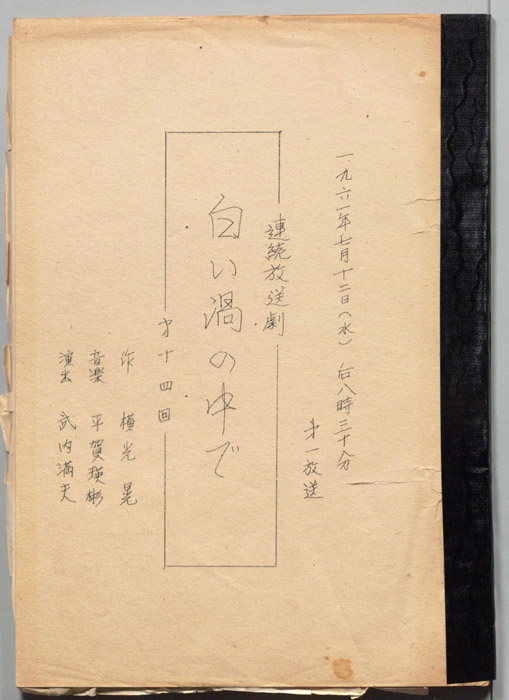 一九六一年七月十二日(水) 后八時三十分
才一放送
連続放送劇
白い渦の中で
才十四回
作 横光晃
音楽 平賀瑛彬
演出 武内満夫